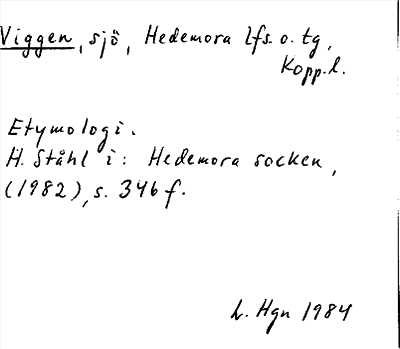 Viggen, sjö, Hedemora lfs. o. tg,
Kopp.l.
Etymologi.
H. Ståhl i: Hedemora socken,
(1982), s. 346 f.
L. Hgn 1984